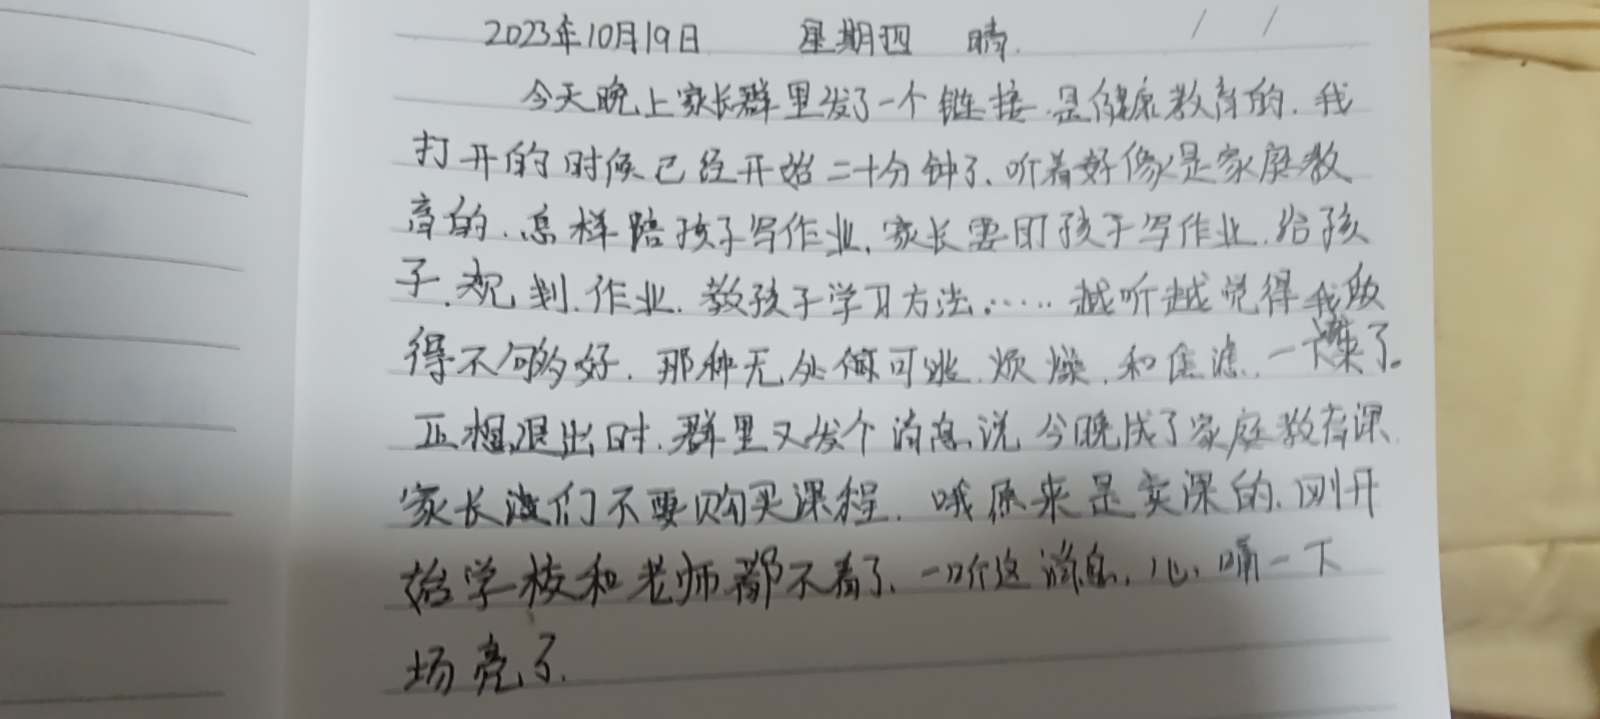 2023年10月19日 星期四 晴.
今天晚上家长群里发了一个链接.是健康教育的.我
打开的时候已经开始二十分钟了.听着好像是家庭教
育的.怎样陪孩子写作业.家长要回孩子写作业.给孩
子.规划.作业.教孩子学习方法:……越听越觉得我做
得不够好.那种无处何可逃.烦燥.和焦滤.一下来了.
正想退出时.群里又发个消息说今晚成了家庭教育课.
家长们不要购买课程.哦原来是卖课的.刚开
始学校和老师都不看了.一听这消息.心.一下
场亮了.